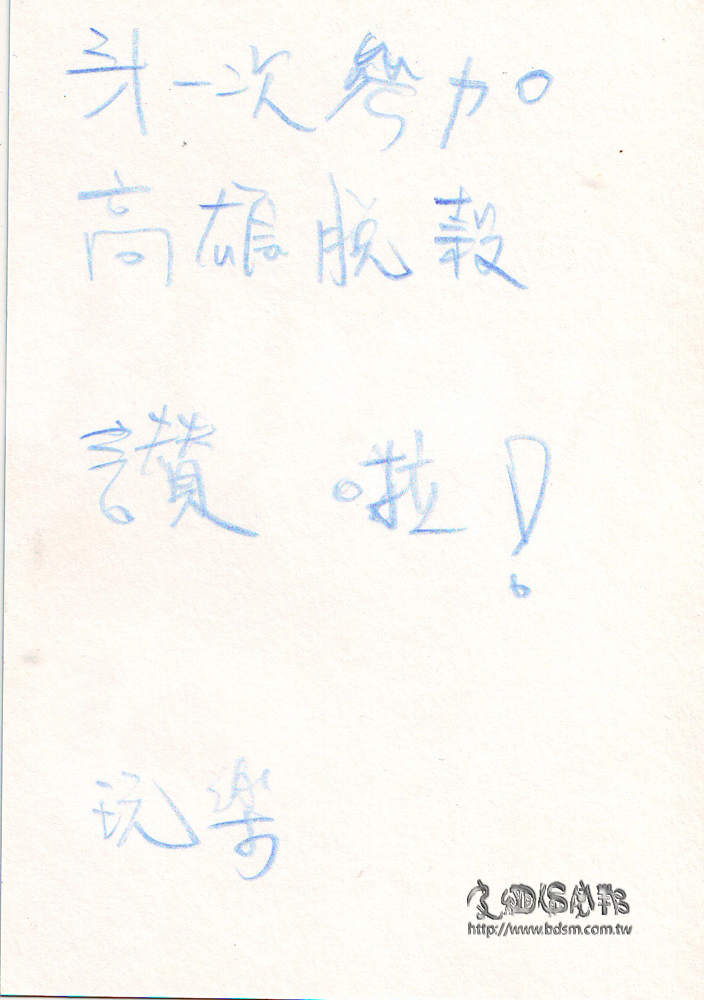 第一次參加
高雄脫殼
讚 啦!
玩樂
http://www.bdsm.com.tw